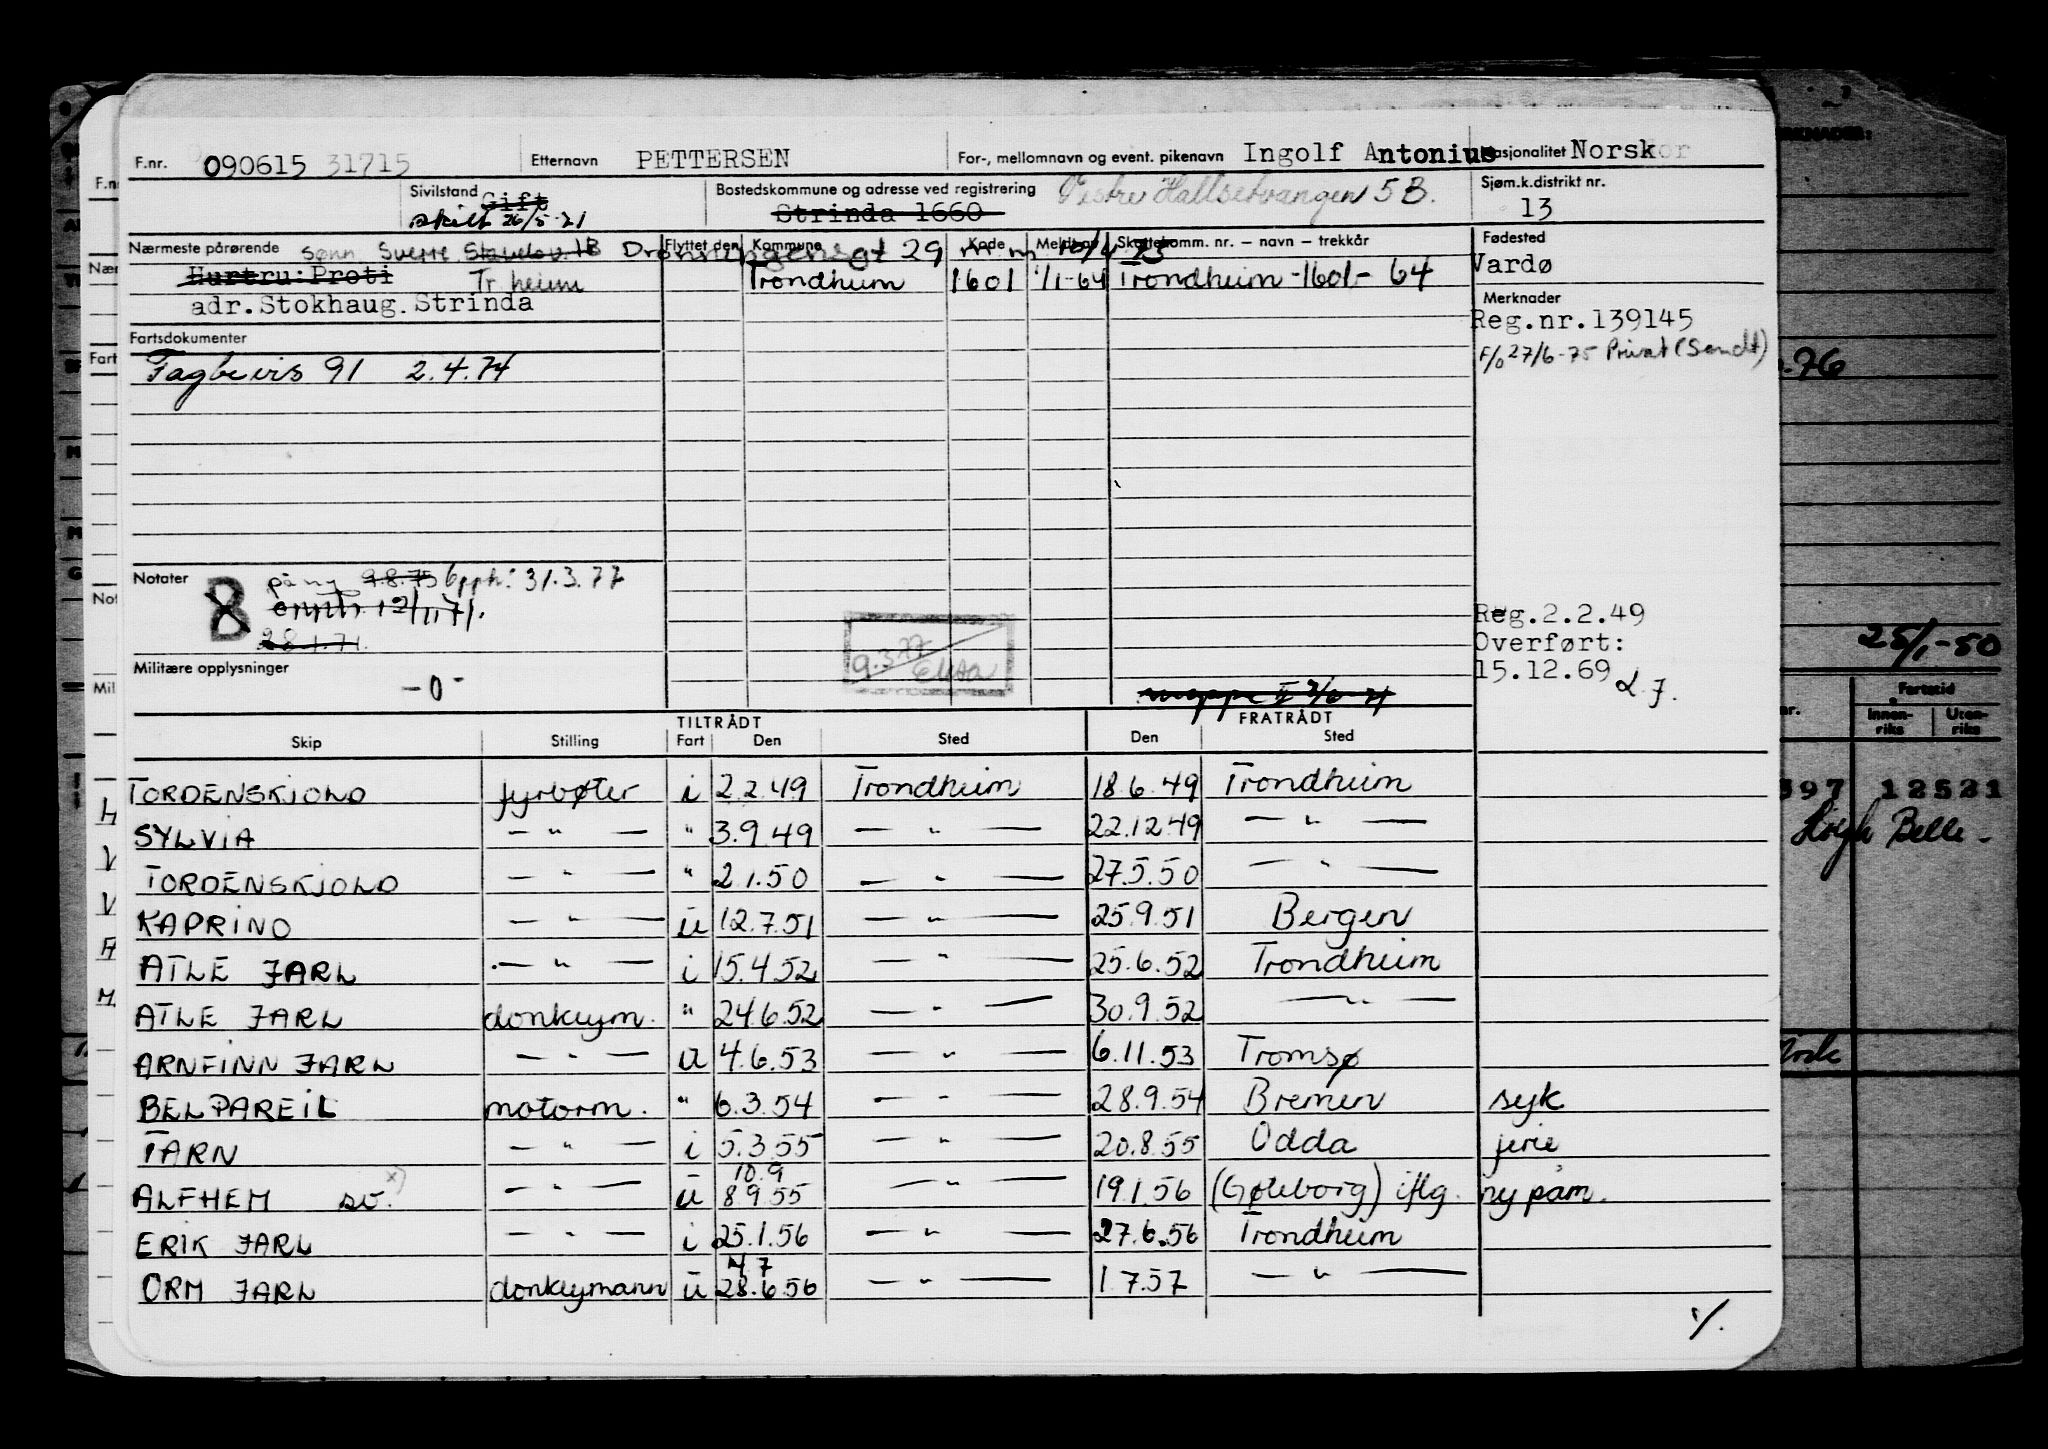 F.nr. 090615 31715 Etternavn PETTERSEN For-, mellomnavn og event. pikenavn Ingolf Antonius Nasjonalitet Norsk
Sivilstand Gift skilt 26/5-71 Bostedskommune og adresse ved registrering Strinda 1660 Vestre Hallsetvangen 5B. Sjøm.k.distrikt nr. 13
Nærmeste pårørende sønn Sverre Dronningensgt 29 Flyttet den Kommune Kode Meldt av Skattekomm. nr. – navn – trekkår Fødested
Hurtru: Proti Tr.heim Trondheim 1601 1/1-64 Trondheim -1601- 64 Vardø
adr. Stokhaug. Strinda Merknader
Reg.nr.139145
Fartsdokumenter F/o 27/6-75 Privat (Sendt)
Fagbevis 91 2.4.74 76
Notater 8 på ny 9.8.75 31.3.77
12/11 71.
28.1.71. Reg.2.2.49
Overført:
9.3.77 15.12.69 25/1-50
Militære opplysninger -0-
TILTRÅDT FRATRÅDT Fartstid
Skip Stilling Fart Den Sted Den Sted Innen-riks Uten-riks
TORDENSKJOLD fyrbøter i 2.2.49 Trondheim 18.6.49 Trondheim 397 12521
SYLVIA — " — " 3.9.49 — " — 22.12.49 — " — Høegh Belle -
TORDENSKJOLD — " — " 2.1.50 — " — 27.5.50 — " —
KAPRINO — " — u 12.7.51 — " — 25.9.51 Bergen
ATLE JARL — " — i 15.4.52 — " — 25.6.52 Trondheim
ATLE JARL donkeym. " 24.6.52 — " — 30.9.52 — " —
ARNFINN JARL — " — u 4.6.53 — " — 6.11.53 Tromsø
BELPAREIL motorm. " 6.3.54 — " — 28.9.54 Bremen syk
TARN — " — i 5.3.55 — " — 20.8.55 Odda ferie
10.9
ALFHEM sv. x) — " — u 8.9.55 — " — 19.1.56 (Gøteborg) iflg. ny påm.
ERIK JARL — " — i 25.1.56 — " — 27.6.56 Trondheim
4 7
ORM JARL donkeymann u 28.6.56 — " — 1.7.57 — " —